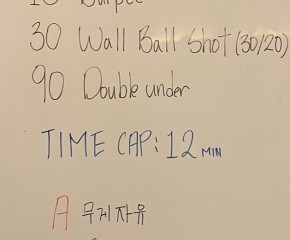 30 Wall Ball Shot (30/20)
90 Double under
TIME CAP: 12 MIN
A 무게자유